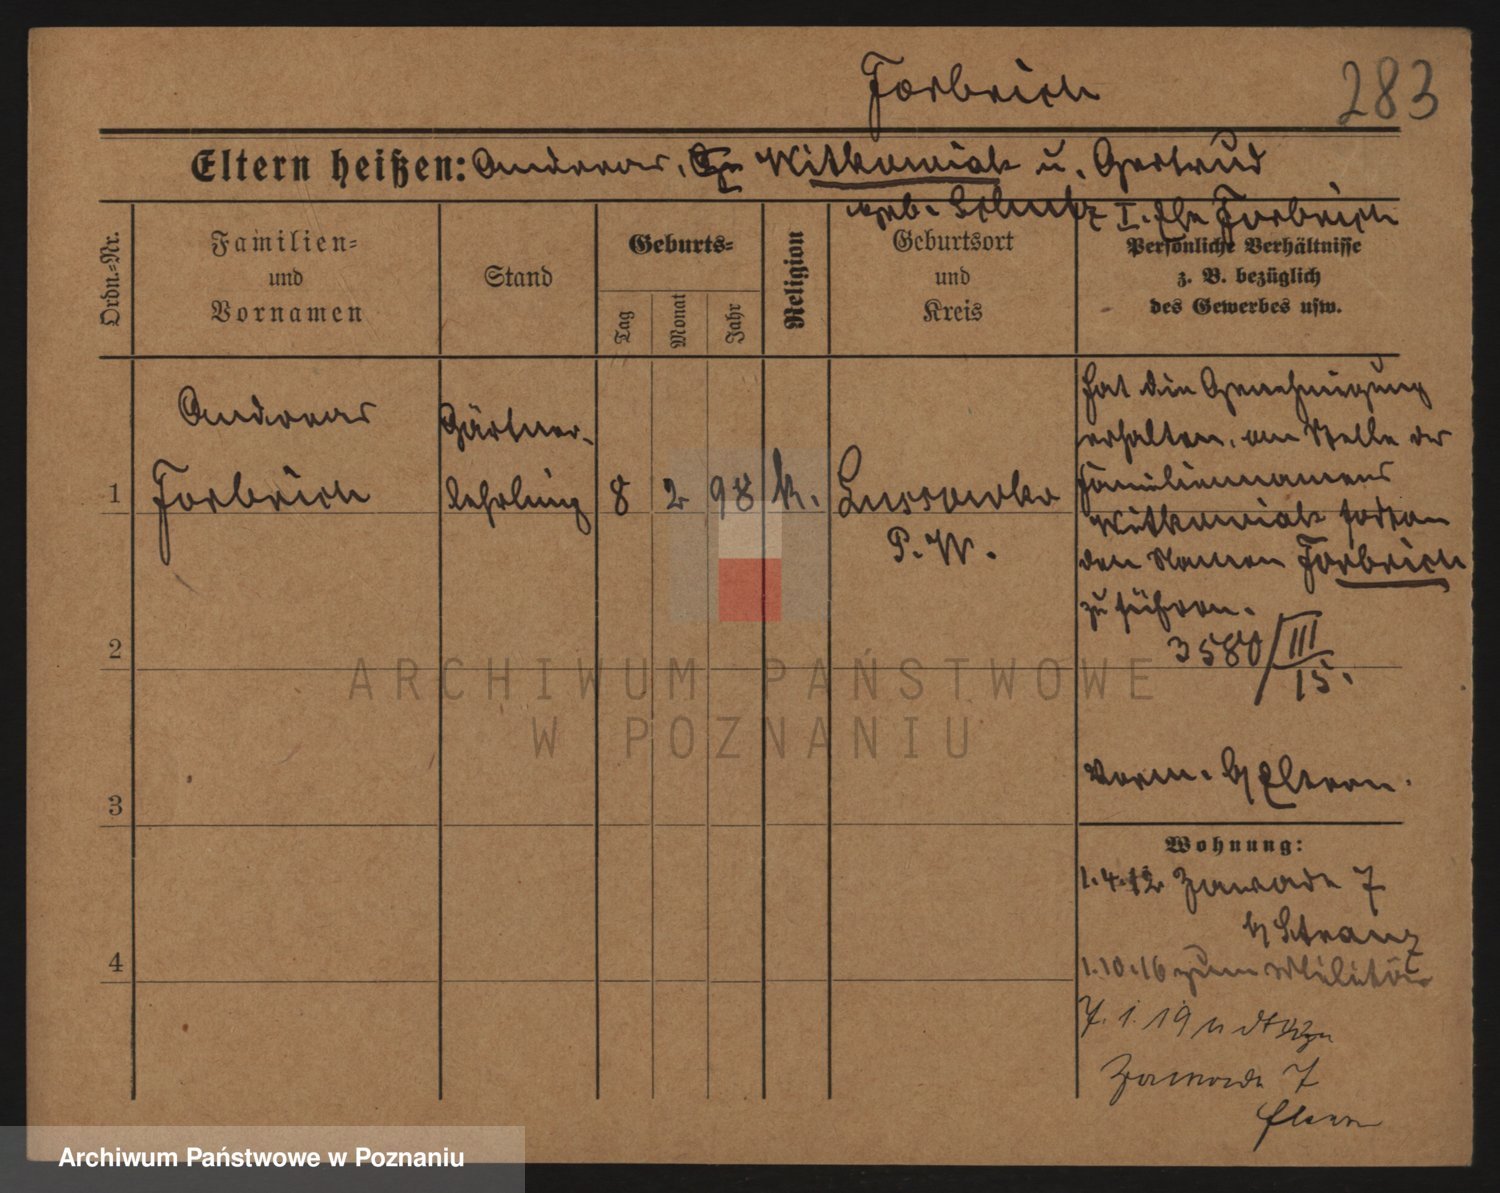 Forbrich
283
Eltern heißen: Andreas, Witkowiak u. Gertrud
geb. Schulz I. Ehe Forbrich
Ordn.-Nr.
Familien-
und
Vornamen
Stand
Geburts-
Tag
Monat
Jahr
Religion
Geburtsort
und
Kreis
Persönliche Verhältnisse
z. B. bezüglich
des Gewerbes usw.
1
Andreas
Forbrich
Gärtner-
lehrling
8
2
98
k.
Lussowko
P. W.
hat die Genehmigung
erhalten, an Stelle des
Familiennamens
Witkowiak fortan
den Namen Forbrich
zu führen.
3580/III
15.
2
Vorm. b/ Eltern.
3
Wohnung:
1.4.12 Zawade 7
b/ Stranz
4
1.10.16 zum Militär
7. 1. 19
Zawade 7
Eltern
ARCHIWUM PAŃSTWOWE
W POZNANIU
Archiwum Państwowe w Poznaniu